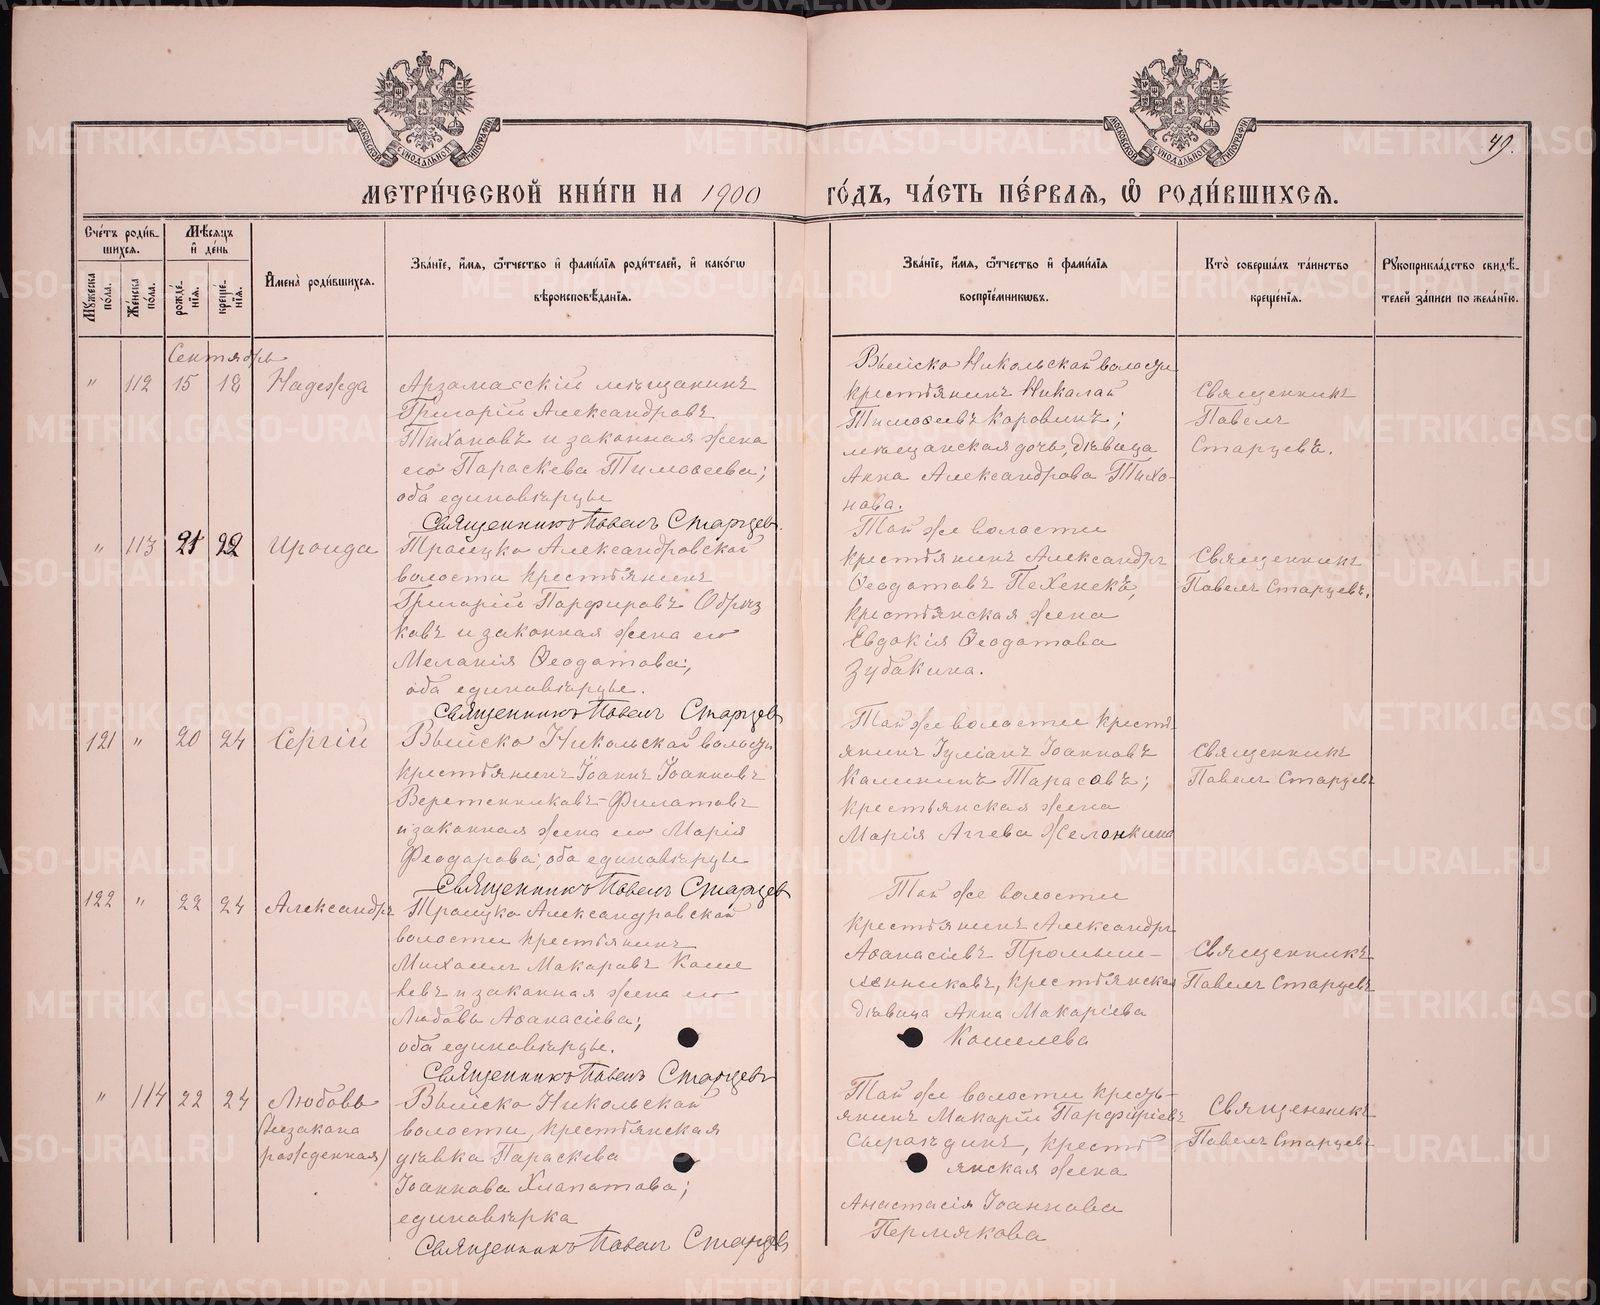 49.
МЕТРИ́ЧЕСКОЙ КНИ́ГИ НА 1900 ГО́ДЪ, ЧА́СТЬ ПЕ́РВАЯ, Ѡ РОДИ́ВШИХСЯ.
Сче́тъ роди́в-
шихся.
Мꙋжеска пола.
Же́нска пола.
Мѣ́сяцъ
и҆ де́нь
рожде́-
нїя.
креще́-
нїя.
И҆мена̀ роди́вшихся.
Зва́нїе, и҆́мя, ѻ҆́тчество и҆ фами́лїя роди́телей, и҆ како́гѡ
вѣроисповѣ́данїя.
Зва́нїе, и҆́мя, ѻ҆́тчество и҆ фами́лїя
воспрїе́мникѡвъ.
Кто̀ соверша́лъ та́инство
креще́нїя.
Рꙋкоприкла́дство свидѣ́-
телей за́писи по жела́нїю.
Сентябрь
" 112 15 18 Надежда
Арзамасскій мѣщанинъ
Григорій Александровъ
Тихоновъ и законная жена
его Параскева Тимоѳеева;
оба единовѣрцы
Священникъ Павелъ Старцев.
Выйско Никольской волости
крестьянинъ Николай
Тимоѳеевъ Коровинъ;
мѣщанская дочь, дѣвица
Анна Александрова Тихо-
нова.
Священникъ
Павелъ
Старцевъ.
" 113 21 22 Ираида
Троицко Александровской
волости крестьянинъ
Григорій Парфировъ
ковъ и законная жена его
Меланія Ѳеодотова;
оба единовѣрцы.
Священникъ Павелъ Старцев
Той же волости
крестьянинъ Александръ
Ѳеодотовъ
крестьянская жена
Евдокія Ѳеодотова
Зубакина.
Священникъ
Павелъ Старцевъ.
121 " 20 24 Сергій
Выйско Никольской волости
крестьянинъ Іоаннъ Іоанновъ
Веретенниковъ-Филатовъ
и законная жена его Марія
Феодорова; оба единовѣрцы
Священникъ Павелъ Старцев
Той же волости крестъ-
янинъ Іуліанъ Іоанновъ
Калининъ Тарасовъ;
крестьянская жена
Марія Аггева Желонкина
Священникъ
Павелъ Старцевъ
122 " 22 24 Александръ
Троицко Александровской
волости крестьянинъ
Михаилъ Макаровъ Коше
левъ и законная жена его
Любовь Аѳанасіева;
оба единовѣрцы.
Священникъ Павелъ Старцевъ
Той же волости
крестьянинъ Александръ
Аѳанасіевъ Промыш-
ленниковъ, крестьянская
дѣвица Анна Макаріева
Кошелева
Священникъ
Павелъ Старцевъ
" 114 22 24 Любовь
(незакона
рожденная)
Выйско Никольской
волости, крестьянская
дѣвка Параскева
Іоаннова Хлопотова;
единовѣрка
Священникъ Павелъ Старцев
Той же волости кресть-
янинъ Макарій Парфиріевъ
крестъ
янская жена
Анастасія Іоаннова
Пермякова
Священникъ
Павелъ Старцевъ
METRIKI.GASO-URAL.RU